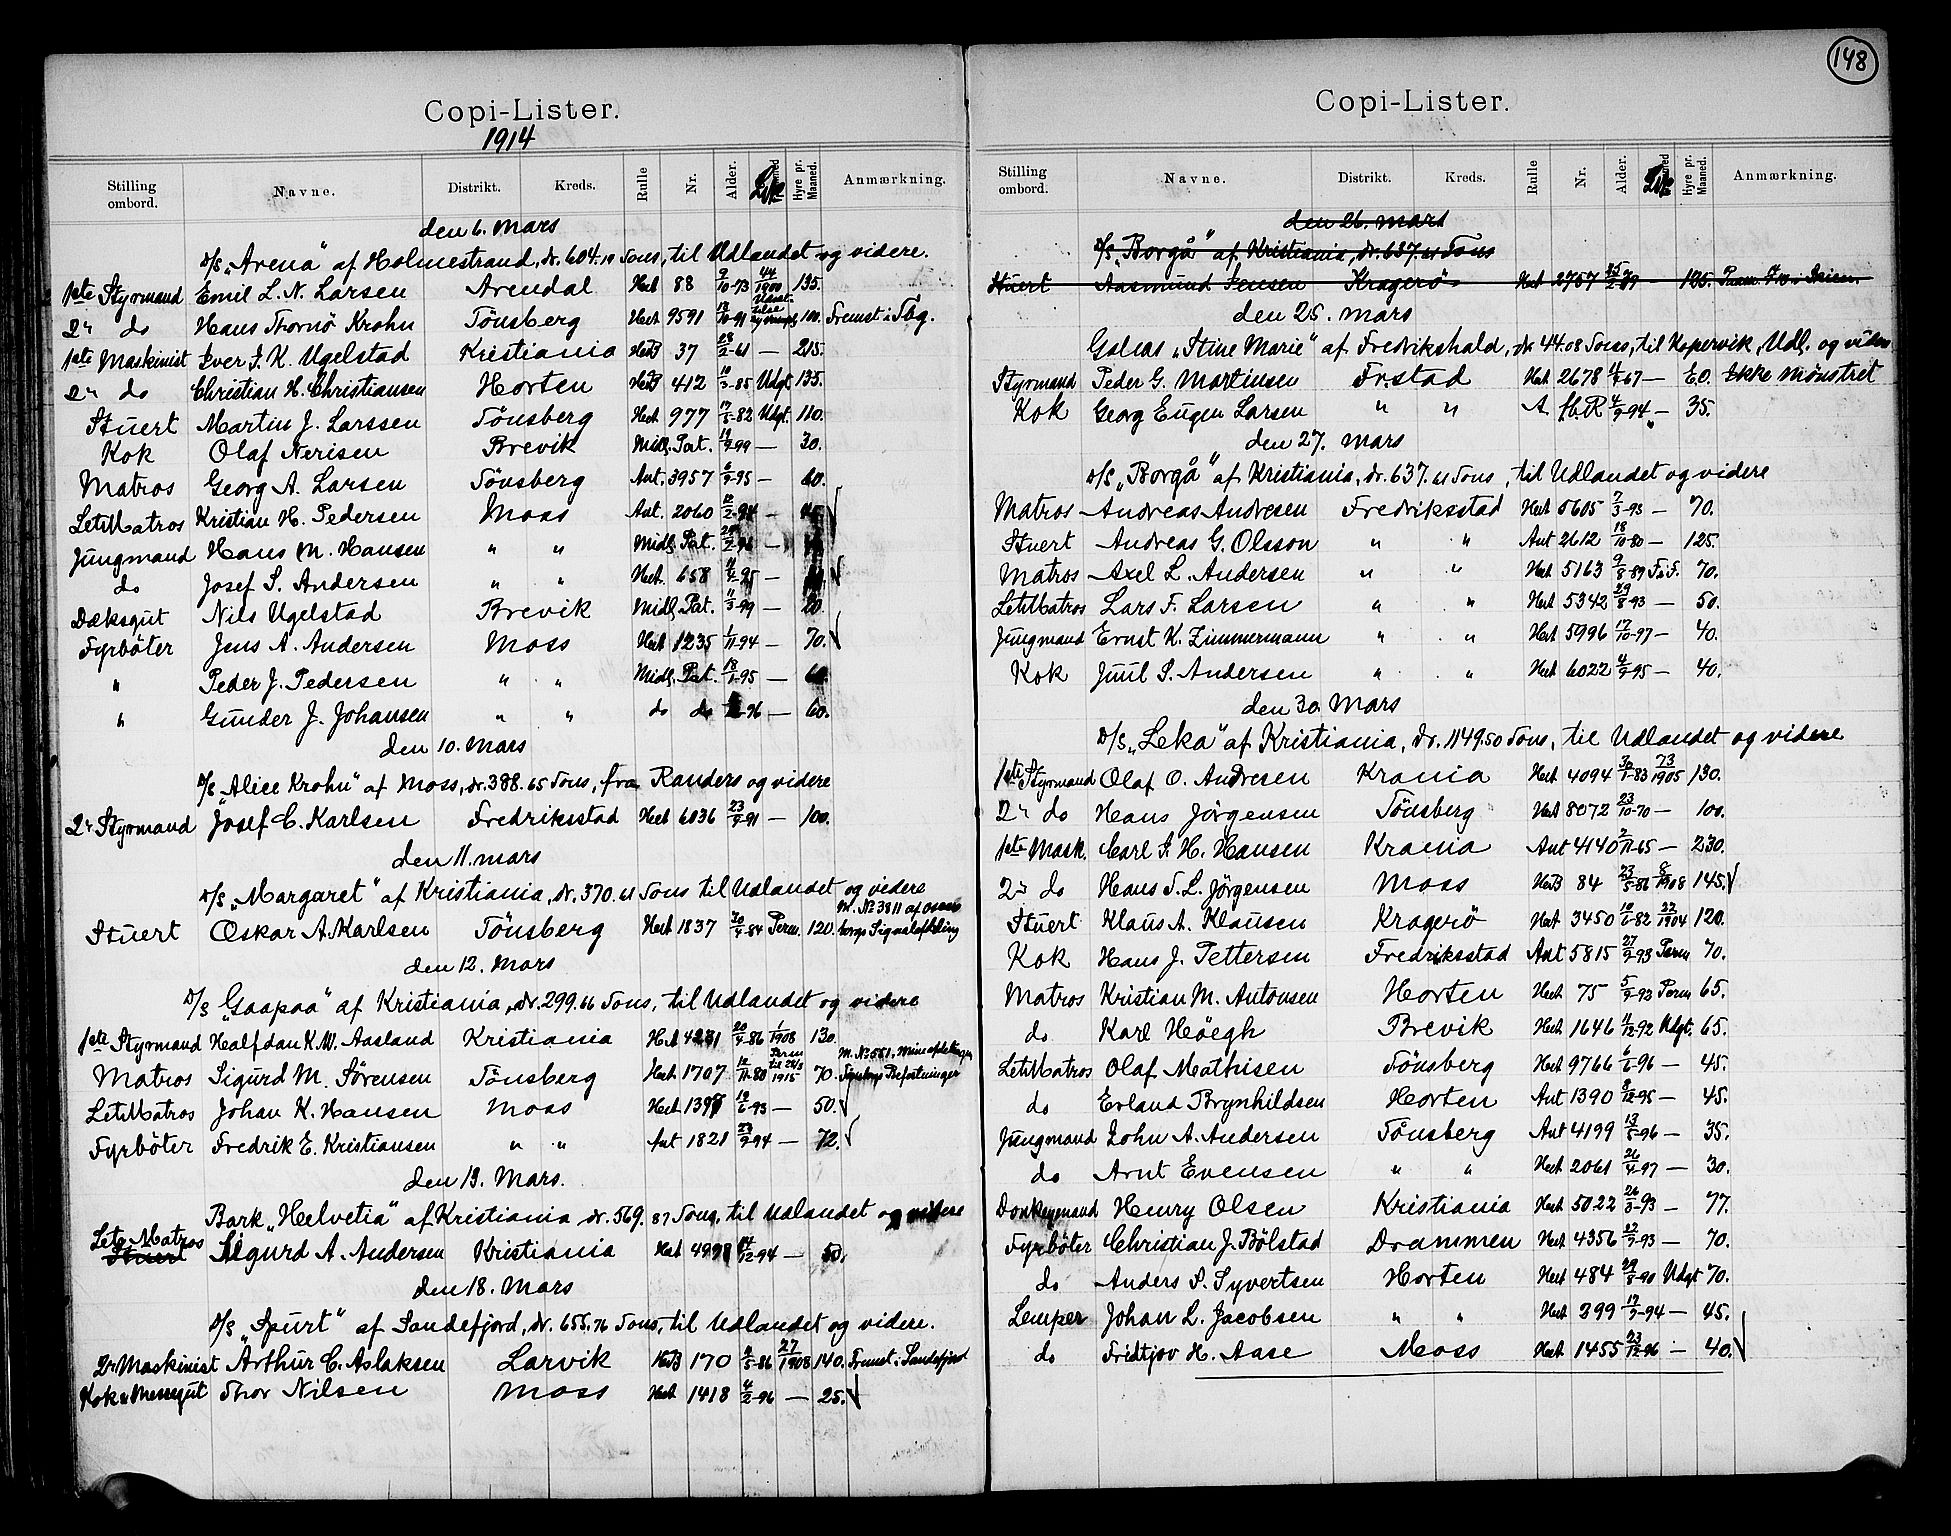 Copi-Lister.
1914
Stilling ombord. Navne. Distrikt. Kreds. Rulle Nr. Alder. Hyre pr. Maaned. Anmærkning.
den 6. Mars
D/S „Arena" af Holmestrand, dr. 604.19 Tons, til Udlandet og videre.
1ste Styrmand Emil L. N. Larsen Arendal Hert 88 9/10-73 44/1900 135.
2n do Hans Thornö Krohn Tönsberg Hert 9591 13/10-91 100. Fremst i Tbg.
1ste Maskinist Iver J. K. Ugelstad Kristiania HertB 37 28/2-61 — 215.
2n do Christian H. Christiansen Horten HertB 412 10/3-85 Udgt. 135.
Stuert Martin J. Larssen Tönsberg Hert 977 17/5-82 Udgt. 110.
Kok Olaf Nerisen Brevik Midl. Pat. 19/2-99 — 30.
Matros Georg A. Larsen Tönsberg Ant. 3957 6/9-95 — 60.
LetMatros Kristian H. Pedersen Moss Ant. 2060 —
Jungmand Hans M. Hansen " " Midl. Pat. —
do Josef S. Andersen " " Hert. 658 —
Dæksgut Nils Ugelstad Brevik Midl. Pat. 11/3-99 — 20.
Fyrböter Jens A. Andersen Moss Hert 1235 1/11-94 — 70.
" Peder J. Pedersen " " Midl. Pat. 18/1-95 — 60
" Gunder J. Johansen " " do do — 60.
den 10. Mars
D/S „Alice Krohn" af Moss, dr. 388.65 Tons, fra Randers og videre
2n Styrmand Josef C. Karlsen Fredriksstad Hert 6036 23/9-91 — 100.
den 11. mars
D/S „Margaret" af Kristiania, dr. 370.61 Tons til Udlandet og videre
M. No 3811 af
Stuert Oskar A. Karlsen Tönsberg Hert 1837 30/4-84 Perm. 120. Signalafdeling
den 12. Mars
D/S „Gaapaa" af Kristiania, dr. 299.66 Tons, til Udlandet og videre
1ste Styrmand Halfdan K. W. Aasland Kristiania Hert 4231 20/9-86 1/1908 130.
M. No 551, Mineafdelingen
Matros Sigurd M. Sörensen Tönsberg Hert 1707 12/11-80 1915 70. Befæstninger
LetMatros Johan K. Hansen Moss Hert 19/6-93 — 50.
Fyrböter Fredrik E. Kristiansen " " Ant 1821 23/9-94 — 72.
den 13. Mars.
Bark „Helvetia" af Kristiania dr. 569.87 Tons, til Udlandet og videre
Let Matros
Stuert Sigurd A. Andersen Kristiania Hert 14/12-94 — 50.
den 18. Mars
D/S „Spurt" af Sandefjord, dr. 655.76 Tons, til Udlandet og videre.
2n Maskinist Arthur C. Aslaksen Larvik HertB 170 9/5-86 27/1908 140. Fremst i Sandefjord
Kok & Messegut Thor Nilsen Moss Hert 1418 4/2-96 — 25.
148
Copi-Lister.
Stilling ombord. Navne. Distrikt. Kreds. Rulle Nr. Alder. Hyre pr. Maaned. Anmærkning.
den 26. mars
D/S „Borgå" af Kristiania, dr. 637.61 Tons
Stuert Aasmund Jensen Kragerö Hert 2757 125.
den 25. mars
Galeas „Stine Marie" af Fredrikshald, dr 44.08 Tons, til Kopervik, Udl. og videre
Styrmand Peder G. Martinsen Frstad Hert 2678 — 60. Ikke mönstret
Kok Georg Eugen Larsen " " A. fb. R 4/9-94 - 35.
den 27. mars
D/S „Borgå" af Kristiania, dr. 637.61 Tons, til Udlandet og videre
Matros Andreas Andresen Fredriksstad Hert 5605 7/3-93 — 70.
Stuert Andreas G. Olsson " " Ant 2612 18/10-80 — 125.
Matros Axel L. Andersen " " Hert 5163 9/8-89 F. i F. 70.
LetMatros Lars F. Larsen " " Hert 5342 29/8-93 — 50.
Jungmand Ernst K. Zimmermann " " Hert 5996 17/10-97 — 40.
Kok Juul S. Andersen " " Hert 6022 4/9-95 — 40.
den 30. Mars
D/S „Leka" af Kristiania, dr. 1149.50 Tons, til Udlandet og videre
1ste Styrmand Olaf O. Andresen Krania Hert 4094 30/1-83 73/1905 130.
2n do Hans Jörgensen Tönsberg Hert 8072 23/10-70 — 100.
1ste Mask. Carl J. H. Hansen Krania Ant 4140 2/11-65 — 230.
2n do Hans T. L. Jörgensen Moss HertB 84 23/5-86 8/1908 145.
Stuert Klaus A. Klausen Kragerö Hert 3450 10/6-82 22/1904 120.
Kok Hans J. Pettersen Fredriksstad Ant 5815 27/9-93 Perm 70.
Matros Kristian M. Antonsen Horten Hert 75 5/9-92 Perm 65.
do Karl Höegh Brevik Hert 1646 11/12-92 Udgt. 65.
LetMatros Olaf Mathisen Tönsberg Hert 9766 1/6-96 — 45.
do Erland Brynhildsen Horten Ant 1390 8/12-95 — 45.
Jungmand John A. Andersen Tönsberg Ant 4199 13/5-96 — 35.
do Arnt Evensen " " Hert 2061 26/4-97 — 30.
Donkeymand Henry Olsen Kristiania Hert 5022 26/3-93 — 77.
Fyrböter Christian J. Bölstad Drammen Hert 4356 22/9-93 — 70.
do Anders S. Syvertsen Horten Hert 484 29/8-90 Udgt 70.
Lemper Johan L. Jacobsen " " Hert 399 17/9-94 — 45.
do Fridtjov H. Aase Moss Hert 1455 23/12-96 — 40.